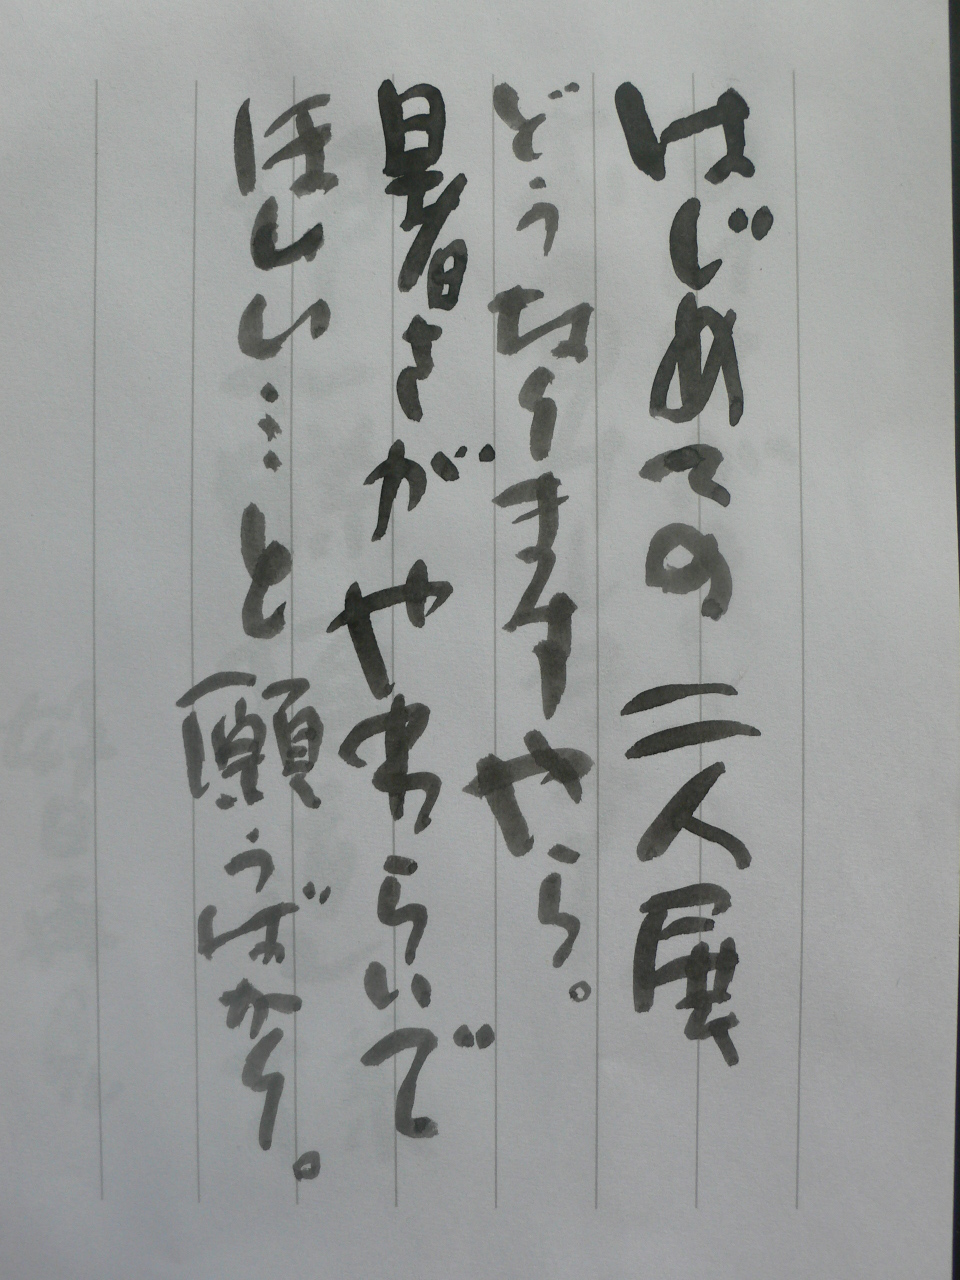 はじめての二人展
どうなりますやら。
暑さがやわらいで
ほしい…と願うばかり。